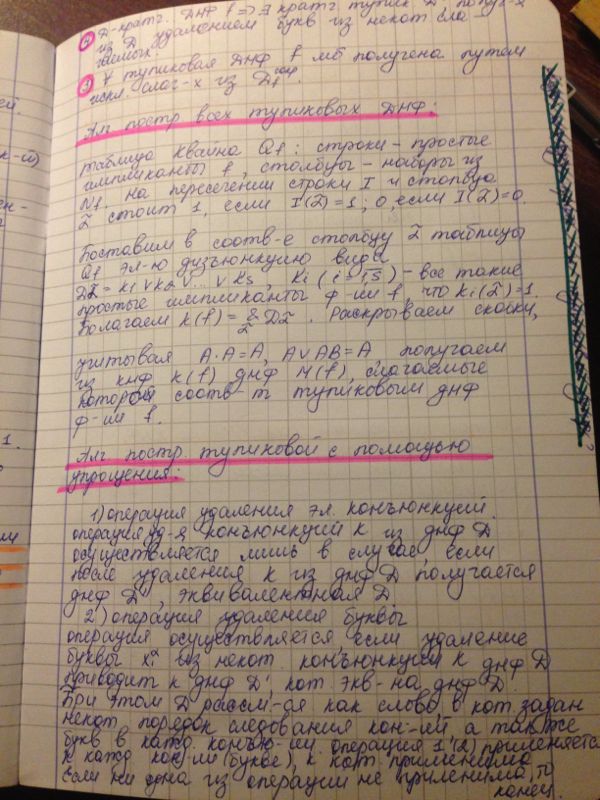 ② D-кратч. ДНФ f ⇒ ∃ кратч. тупик D', получ-х
из D удалением букв из некот сла-
гаемых.
③ ∀ тупиковая ДНФ f мб получена путем
искл. слаг-х из D
Алг постр всех тупиковых ДНФ:
таблица Квайна Qf: строки - простые
импликанты f, столбцы - наборы из
Nf, на пересечении строки I и столбца
α̃ стоит 1, если I(α̃)=1; 0, если I(α̃)=0.
Поставим в соотв-е столбцу α̃ таблицы
Qf эл-ю дизъюнкцию вида
Dα̃ = K₁ ∨ K₂ ∨ ... ∨ Ks, Ki (i=1,s) - все такие
простые импликанты ф-ии f, что Ki(α̃)=1.
Полагаем K(f) = & Dα̃. Раскрываем скобки,
α̃
учитывая A·A=A, A∨AB=A, получаем
из кнф K(f) днф M(f), слагаемые
которой соотв-т тупиковым днф
ф-ии f.
Алг постр. тупиковой с помощью
упрощения:
1) операция удаления эл. конъюнкций.
операция уд-я конъюнкций K из днф D
осуществляется лишь в случае, если
после удаления K из днф D получается
днф D', эквивалентная D
2) операция удаления буквы
операция осуществляется, если удаление
буквы из некот. конъюнкции K днф D
приводит к днф D', кот. экв-на днф D.
При этом D рассм-ая как слово, в кот. задан
некот. порядок следования кон-ий, а также
букв в кажд. конъю-ии. операция 1 (2) применяется
к кажд. кон-ии (букве), к кот. применима
если ни одна из операций не применима, то
конец.